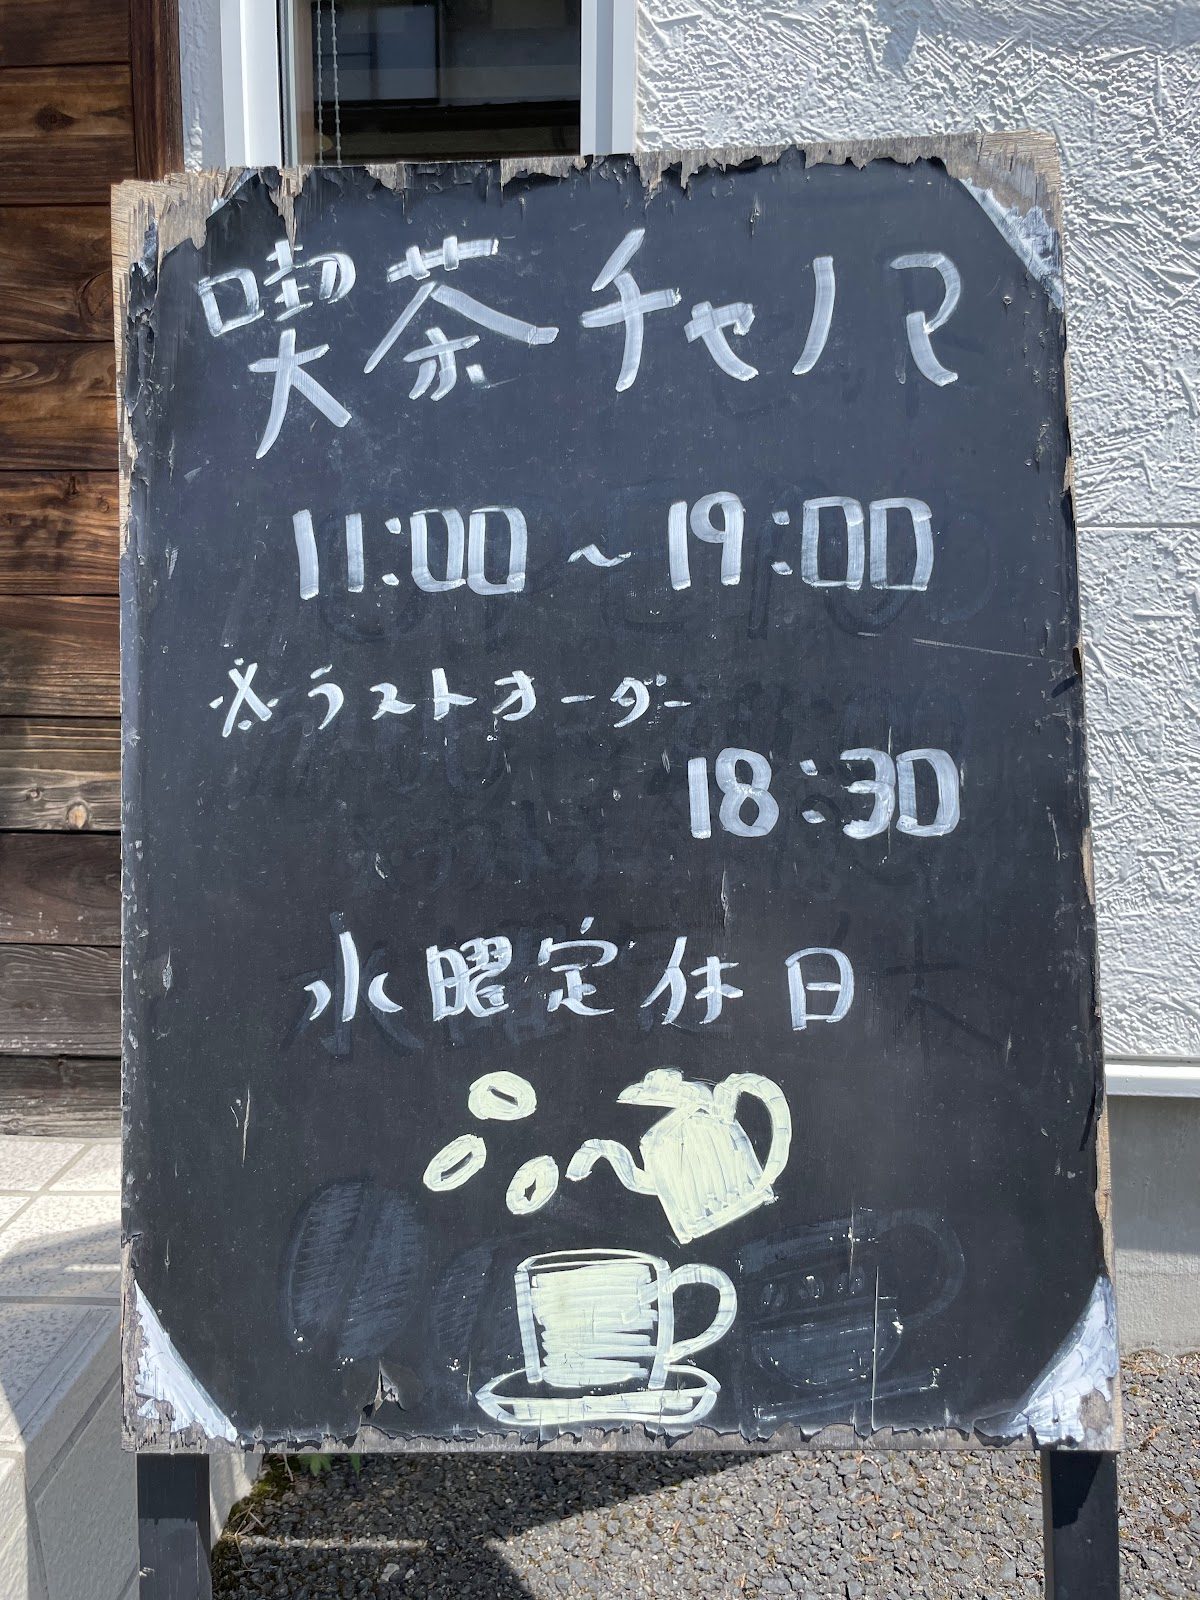 喫茶チャノマ
11:00～19:00
※ラストオーダー
18:30
水曜定休日